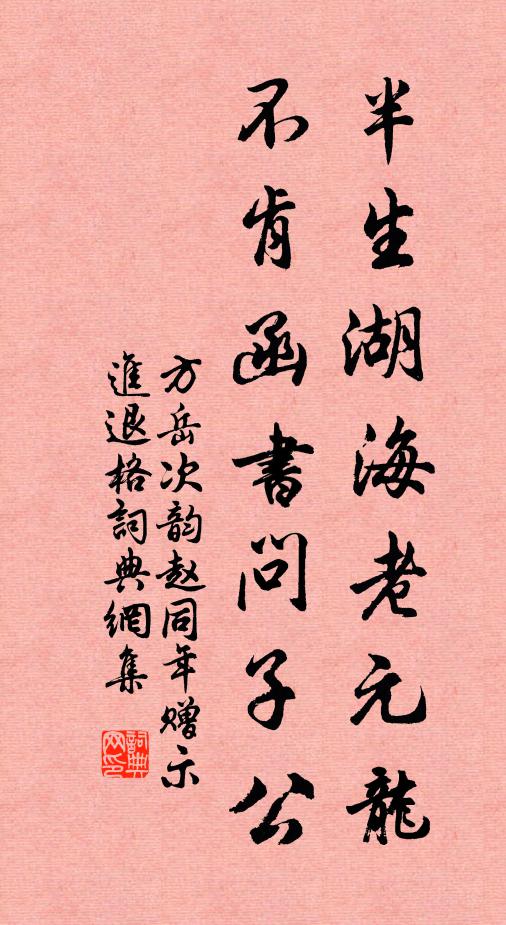 半生湖海老元龍
不肯函書問子公
方岳次韵赵同年赠示
進退格詞典網集
詞典网印